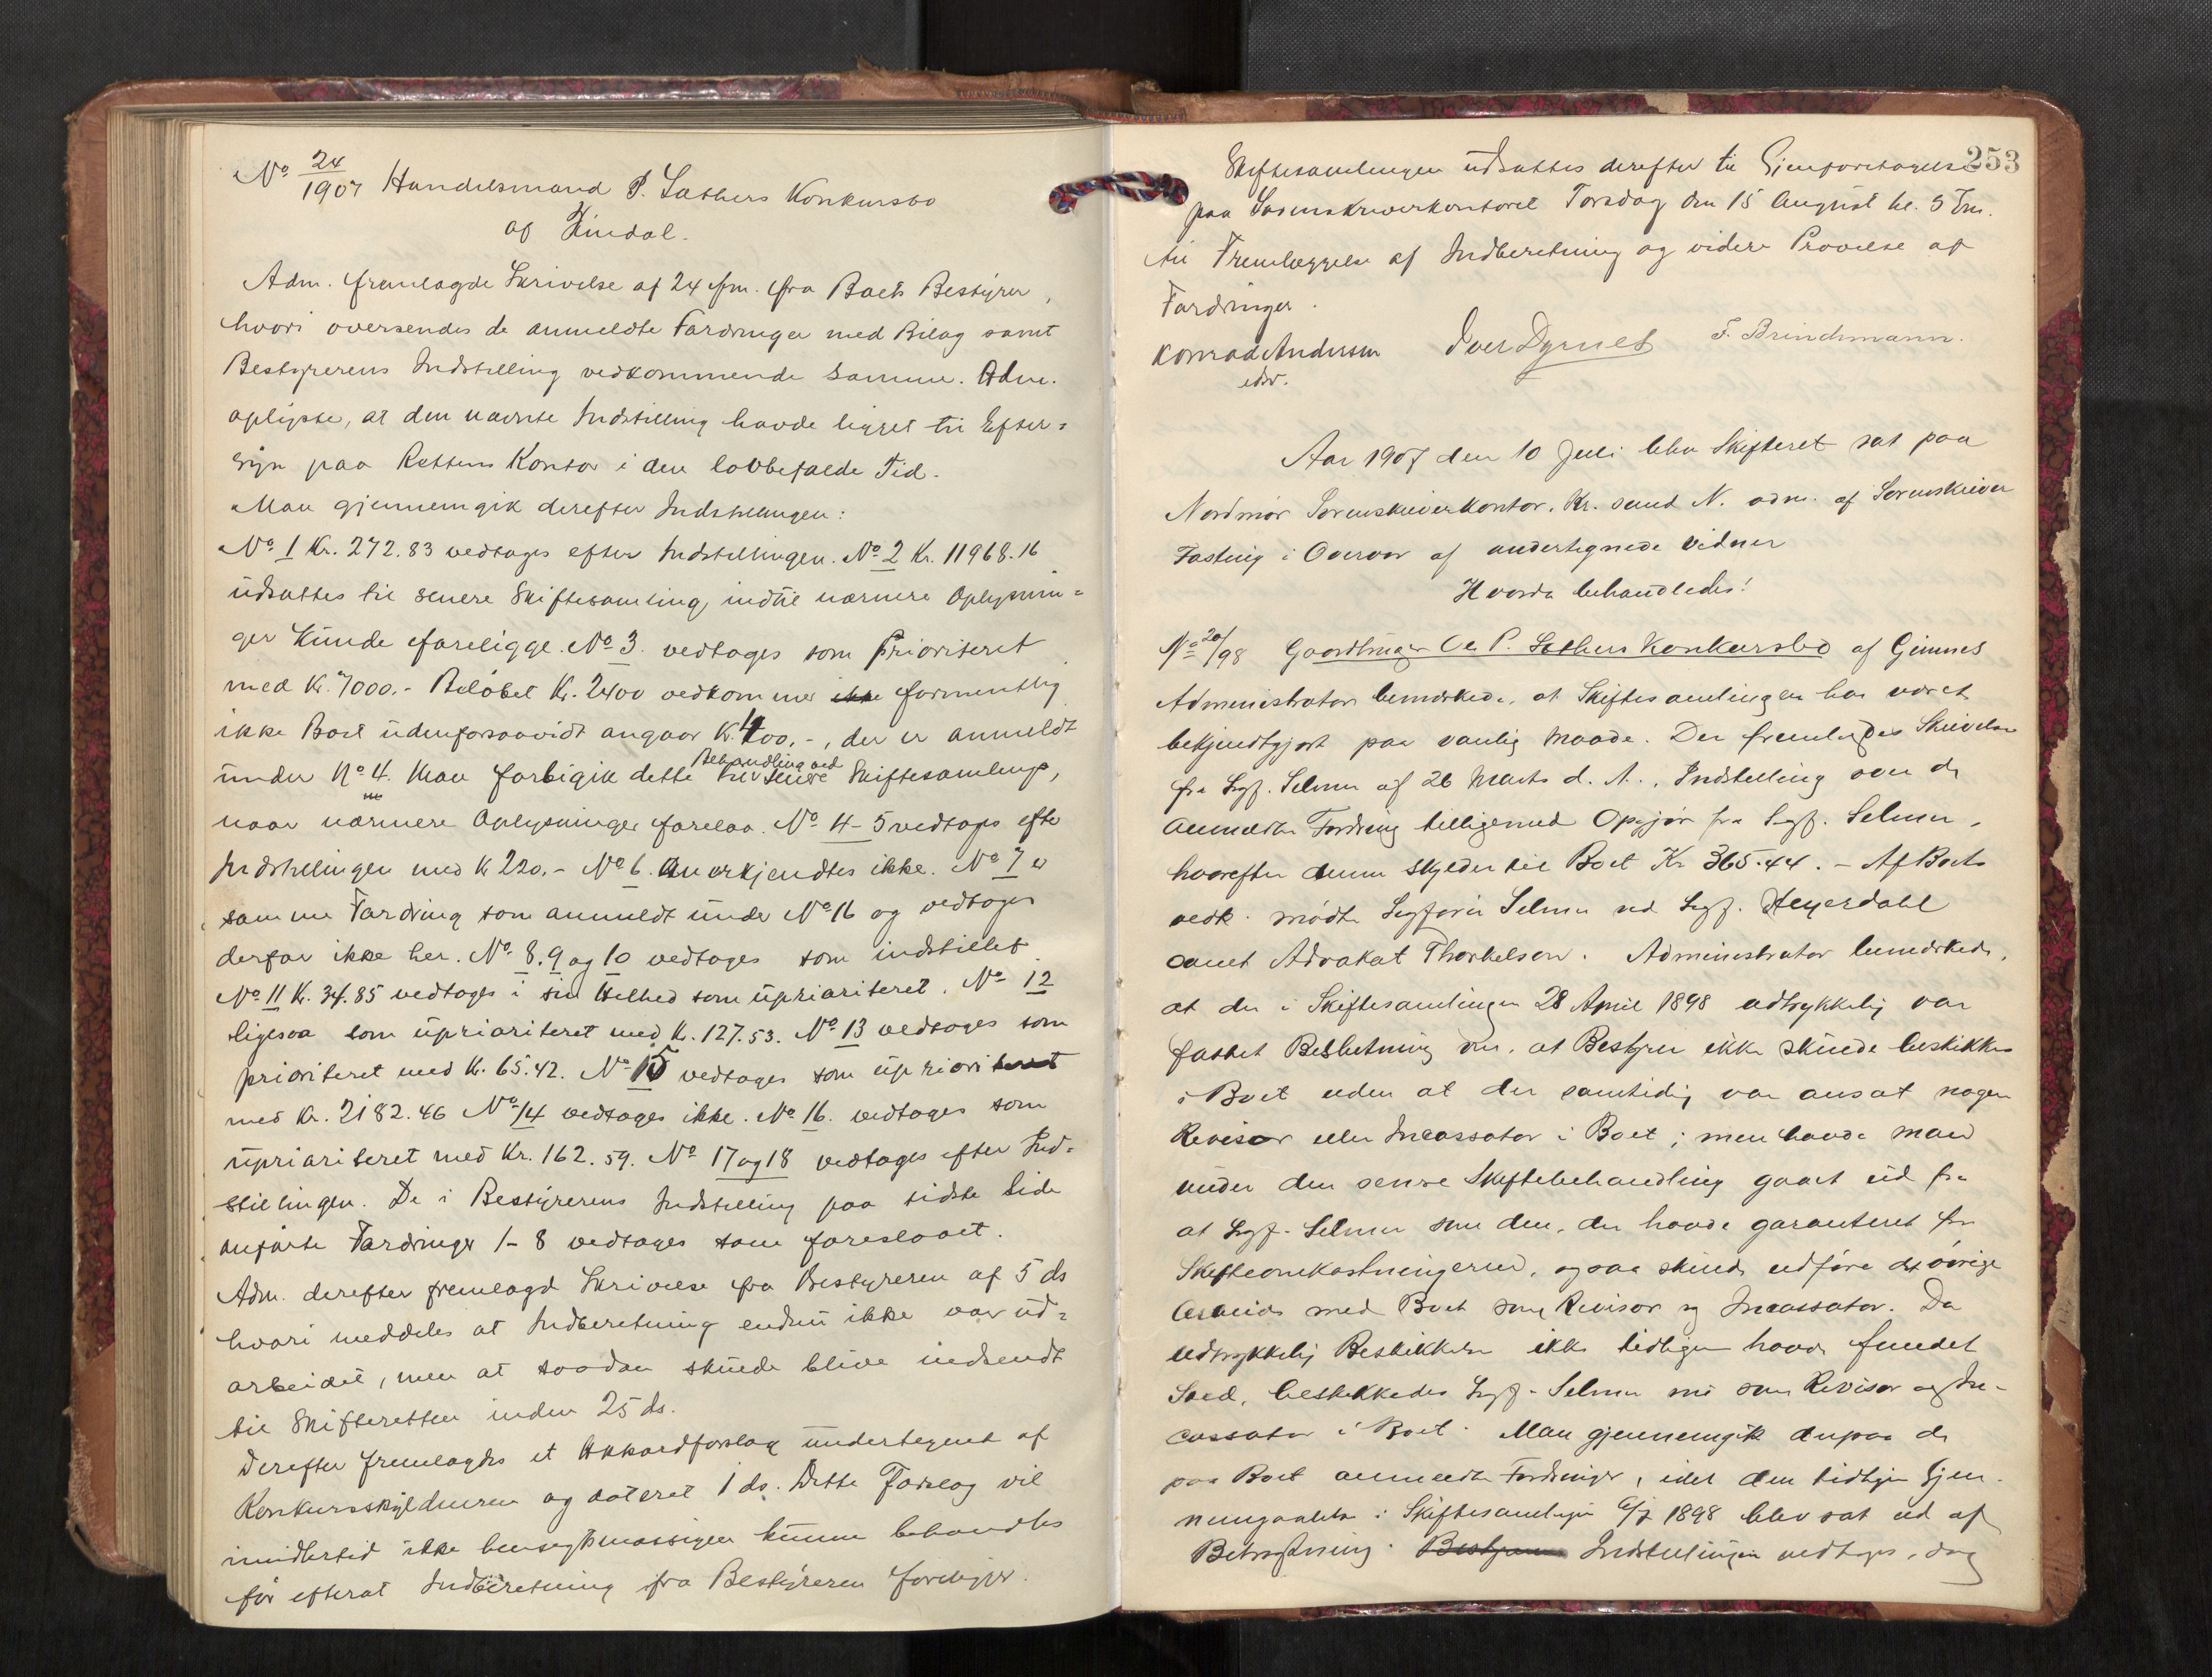 No 24/1907 Handelsmand P. Sæthers Konkursbo
af Surendal.
Adm. fremlagde Skrivelse af 24 fm. fra Boets Bestyrer,
hvori oversendes de anmeldte Fordringer med Bilag samt
Bestyrerens Indstilling vedkommende samme. Adm.
oplyste, at den nævnte Indstilling havde ligget til Efter=
syn paa Rettens Kontor i den lovbefalede Tid.
Man gjennemgik derefter Indstillingen:
No 1 Kr. 272.83 vedtages efter Indstillingen. No 2 Kr. 11968.16
udsattes til senere Skiftesamling, indtil nærmere Oplysnin=
ger kunde foreligge. No 3. vedtages som prioriteret
med Kr. 7000.- Beløbet Kr. 2400 vedkommer ikke formentlig
ikke Boet udenforsaavidt angaar Kr. 400.-, der er anmeldt
under No 4. Man forbigik dette til Behandling ved senere Skiftesamling,
naar nærmere Oplysninger forelaa. No 4-5 vedtages efter
Indstillingen med Kr 220.- No 6. Anerkjendtes ikke. No 7 er
samme Fordring som anmeldt under No 16 og vedtages
derfor ikke her. No 8. 9 og 10 vedtages som indstillet
No 11 Kr. 34.85 vedtages i sin Helhed som uprioriteret. No 12
ligesaa som uprioriteret med Kr. 127.53. No 13 vedtages som
prioriteret med Kr. 65.42. No 15 vedtages som uprioriteret
med Kr. 2182.46 No 14 vedtages ikke. No 16. vedtages som
uprioriteret med Kr. 162.59. No 17 og 18 vedtages efter Ind=
stillingen. De i Bestyrerens Indstilling paa sidste Side
anførte Fordringer 1-8 vedtages som foreslaaet.
Adm. derefter fremlagd Skrivelse fra Bestyreren af 5 ds
hvori meddeles at Indberetning endnu ikke var ud=
arbeidet, men at saadan skulde blive indsendt
til Skifteretten inden 25 ds.
Derefter fremlagdes et Akkordforslag undertegnet af
Konkursskyldneren og dateret 1 ds. Dette Forslag vil
imidlertid ikke hensigtsmæssigen kunne behandles
før efterat Indberetning fra Bestyreren foreligger.
253
Skiftesamlingen udsattes derefter til Gjenforetagelse
paa Sorenskriverkontoret Torsdag den 15 August kl. 5 Em.
til Fremlæggelse af Indberetning og videre Prøvelse af
Fordringer.
Konrad Andersen Iver Dyrnes F. Brinchmann.
edsv.
Aar 1907 den 10 Juli blev Skifteret sat paa
Nordmør Sorenskriverkontor, Kr. sund N. adm. af Sorenskriver
Fasting i Overvær af undertegnede Vidner
Hvorda behandledes:
No 20/98 Gaardbruger Ole P. Sæthers Konkursbo af Gimnes
Administrator bemærkede, at Skiftesamlingen har været
bekjendtgjort paa vanlig Maade. Der fremlagdes Skrivelse
fra Sagf. Selmer af 26 Marts d. A., Indstilling over de
anmeldte Fordring tilligemed Opgjør fra Sagf. Selmer,
hvorefter denne skylder til Boet Kr 365.44. - Af Boets
vedk. mødte Sagfører Selmer ved Sagf. Heyerdahl
samt Advokat Thorkelson. Administrator bemærkede,
at der i Skiftesamlingen 28 April 1898 udtrykkelig var
fattet Beslutning om, at Bestyrer ikke skulde beskikkes
i Boet uden at der samtidig var ansat nogen
Revisor eller Incassator i Boet; men havde man
under den senere Skiftebehandling gaaet ud fra
at Sagf. Selmer som den, der havde garanteret for
Skifteomkostningerne, ogsaa skulde udføre det øvrige
Arbeide med Boet som Revisor og Incassator. Da
udtrykkelig Beskikkelse ikke tidligere havde fundet
Sted, beskikkedes Sagf. Selmer nu som Revisor og In-
cassator i Boet. Man gjennemgik derpaa de
paa Boet anmeldte Fordringer, idet den tidligere Gjen-
nemgaaelse i Skiftesamlingen 6/7 1898 blev sat ud af
Betragtning. Indstillingen vedtages, dog